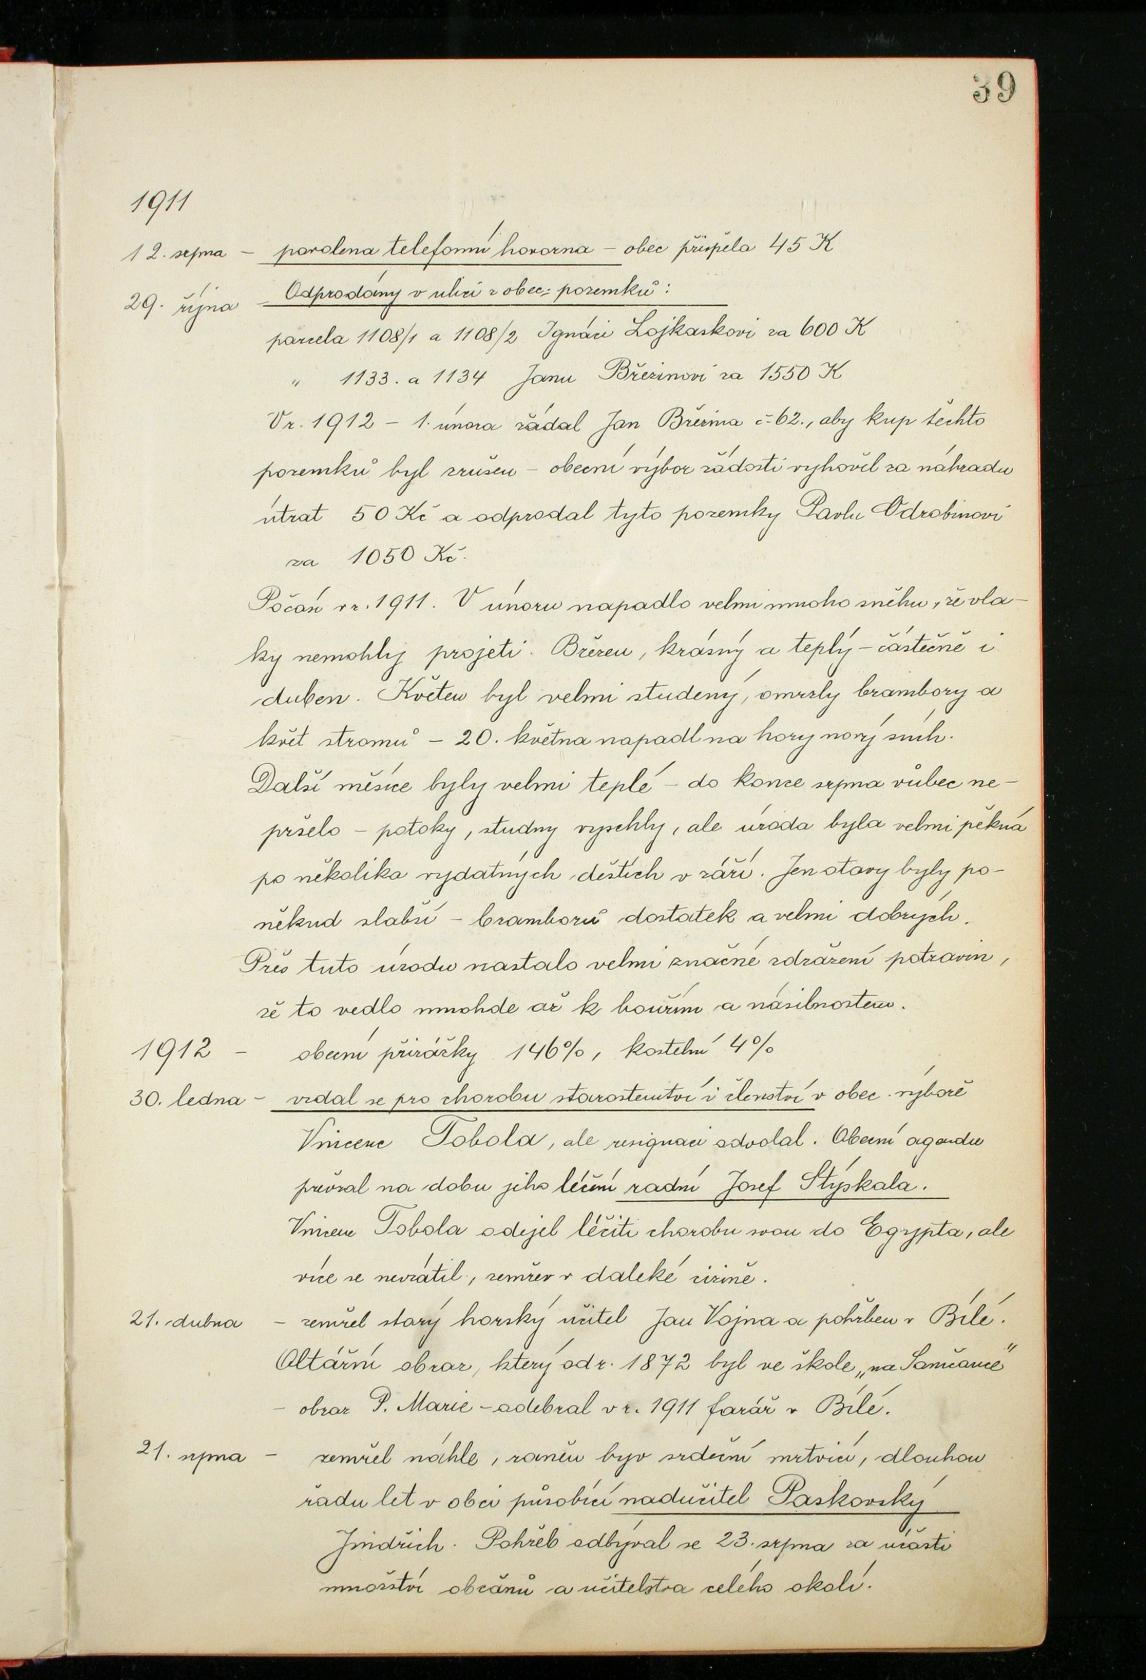 39
1911
12. srpna – povolena telefonní hovorna – obec přispěla 45 K
29. října – Odprodány v ulici z obec: pozemků:
parcela 1108/1 a 1108/2 Ignáci Lojkaskovi za 600 K
„ 1133. a 1134 Janu Březinovi za 1550 K
V r. 1912 – 1. února žádal Jan Březina č. 62., aby kup těchto
pozemků byl zrušen – obecní výbor žádosti vyhověl za náhradu
útrat 50 Kč a odprodal tyto pozemky Pavlu Odrobinovi
za 1050 Kč.
Počasí v r. 1911. V únoru napadlo velmi mnoho sněhu, že vla-
ky nemohly projeti. Březen, krásný a teplý – částečně i
duben. Květen byl velmi studený, omrzly brambory a
květ stromů – 20. května napadl na hory nový sníh.
Další měsíce byly velmi teplé – do konce srpna vůbec ne-
pršelo – potoky, studny vyschly, ale úroda byla velmi pěkná
po několika vydatných deštích v září. Jen otavy byly po-
někud slabší – bramborů dostatek a velmi dobrých.
Přes tuto úrodu nastalo velmi značné zdražení potravin,
že to vedlo mnohde až k bouřím a násilnostem.
1912 – obecní přirážky 146%, kostelní 4%
30. ledna – vzdal se pro chorobu starostenství i členství v obec. výboře
Vincenc Tobola, ale resignaci odvolal. Obecní agendu
převzal na dobu jeho léčení radní Josef Stýskala.
Vincenc Tobola odejel léčiti chorobu svou do Egypta, ale
více se nevrátil, zemřev v daleké cizině.
21. dubna – zemřel starý horský učitel Jan Vojna a pohřben v Bílé.
Oltářní obraz, který od r. 1872 byl ve škole „na Samčance"
– obraz P. Marie – odebral v r. 1911 farář v Bílé.
21. srpna – zemřel náhle, raněn byv srdeční mrtvicí, dlouhou
řadu let v obci působící nadučitel Paskovský
Jindřich. Pohřeb odbýval se 23. srpna za účasti
množství občanů a učitelstva celého okolí.